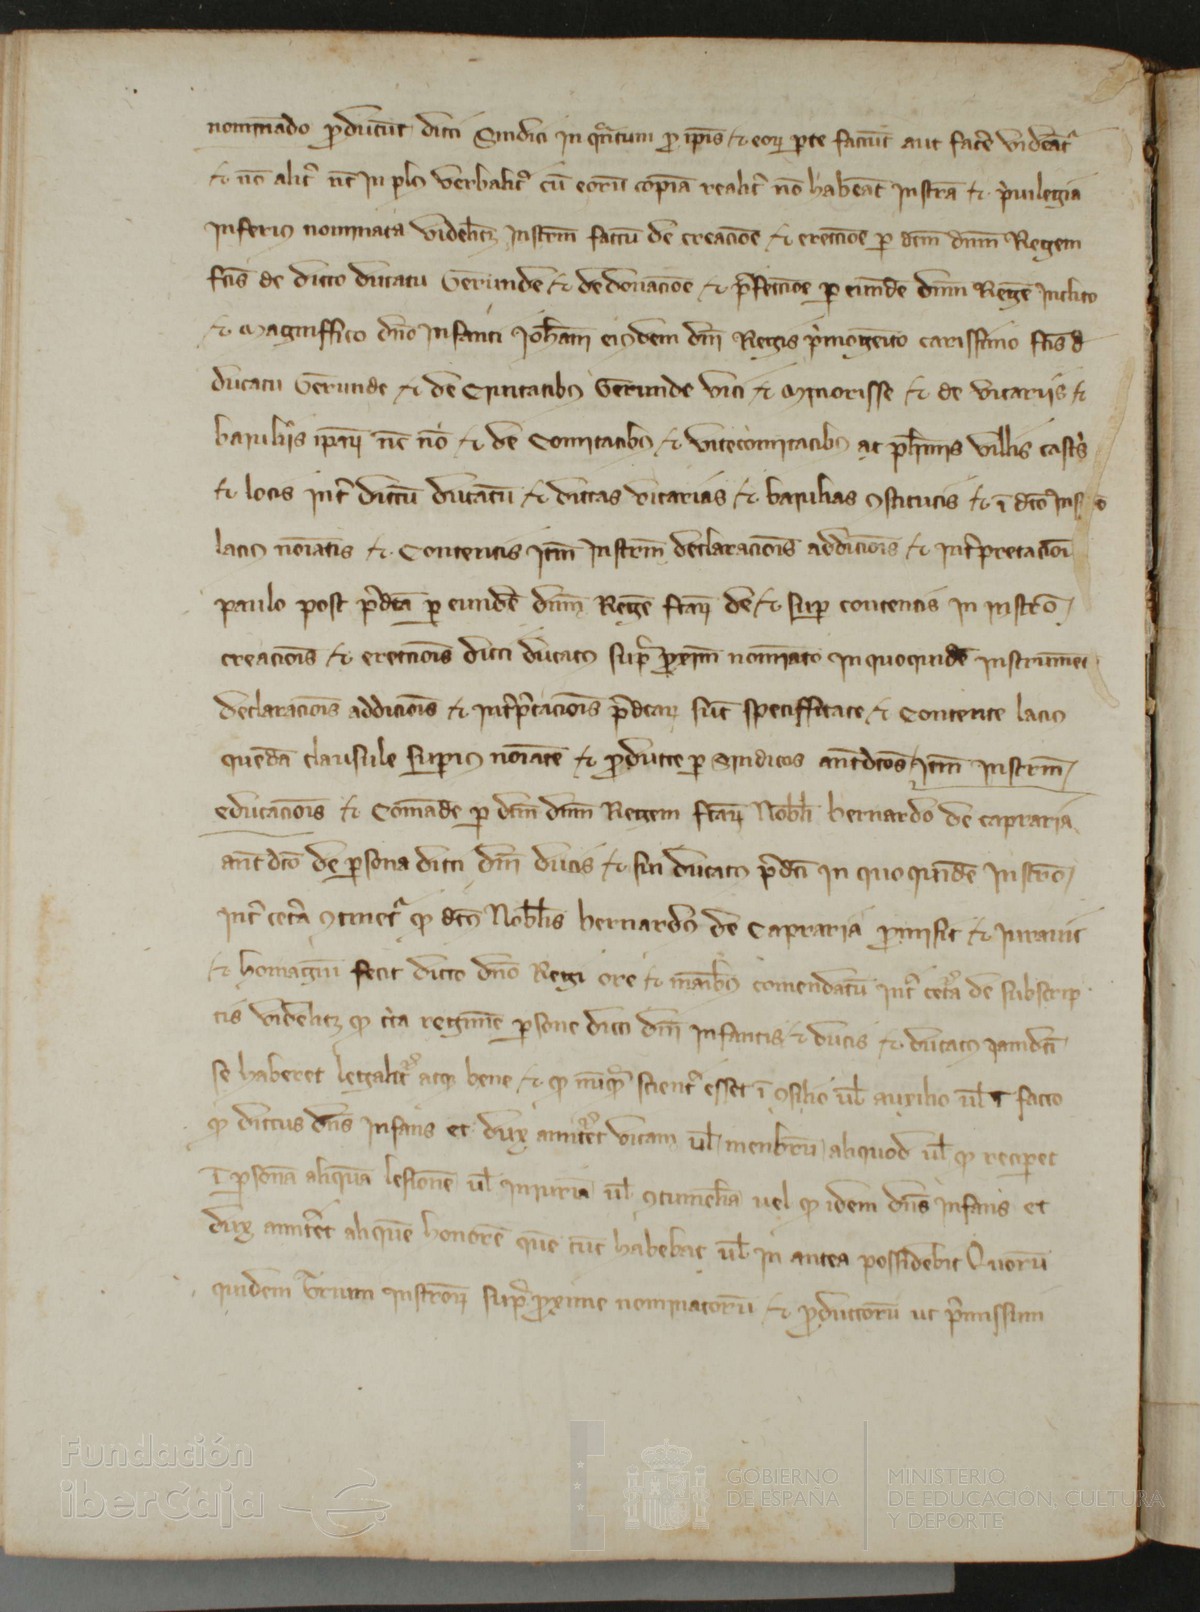 nominado producunt dicti Sindici in qntum p ipis & eor pte faciunt aut face videatr
& no alit nc in plus verbalit cu eoru copia realit no habeat Instra & privilegia
Inferius nominata videlicet Instrm factu de creacioe & ereccioe p dcm dnm Regem
fcis de dicto ducatu Gerunde & de donacioe & pfeccioe p eunde dnm Rege Inclito
& Magniffico dno Infanti Johani eiusdem dni Regis pmogeito carissimo fcis d
ducatu Gerunde & de Civitatibus Gerunde vici & Minorisse & de vicariis &
baiuliis ipar nc no & de Comitatibus & vicecomitatibus ac plimis villis castris
& locis inter dictu ducatu & dictas vicarias & baiulias ostitutis & i dco
lacius noiatis & Contentis Itm Instrm declaraciois addiciois & intpretacioi
paulo post pdca p eunde dnm Rege fcar de & sup contentis in instro
creaciois & ereccionis dicti ducatus sup pxim nominato In quoquide instrumen
declaracois addiciois & intptaciois pdcar sut speciffitate & Contente lacius
queda clausule supius noiate & producte p Sindicos antdcos Itm instrm
educaciois & Comade p dcm dnm Regem fcar Nobili bernardo de capraria
antdco de psona dicti dni ducis & sui ducatus pdci In quo quide Instro
Int cetra otinetr q dcus Nobilis bernardus de Capraria pmisit & Iuravit
& homagiu fecit dicto dno Regi ore & manibus comendatu int cetra de subscrip
tis videlicet q circa regimine psone dicti dni Infantis & ducis & ducatus Jamdci
se haberet legalitr atq bene & q nuq scientr esset i osilio ul auxilio ul i facto
q dictus dns Infans et dux amitret vitam ul menbru aliquod ul q reciperet
I psona aliqua lesione ul Iniuria ul otumelia vel q idem dns infans et
dux amitret alique honore que tuc habebat ul in antea possidebit Quoru
quidem trium Instror sup pxime nominatoru & productoru ut pmissum
Fundación
iberCaja
GOBIERNO
DE ESPAÑA
MINISTERIO
DE EDUCACIÓN, CULTURA
Y DEPORTE